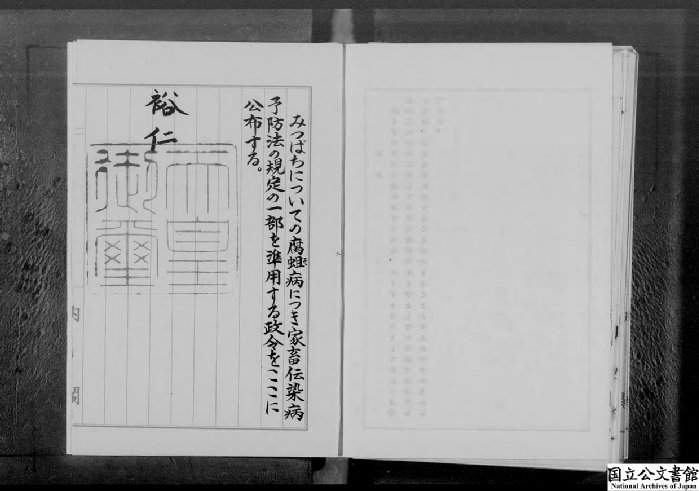 みつばちについての腐蛆病につき家畜伝染病
予防法の規定の一部を準用する政令をここに
公布する。
裕仁
天皇
御璽
内閣
国立公文書館
National Archives of Japan